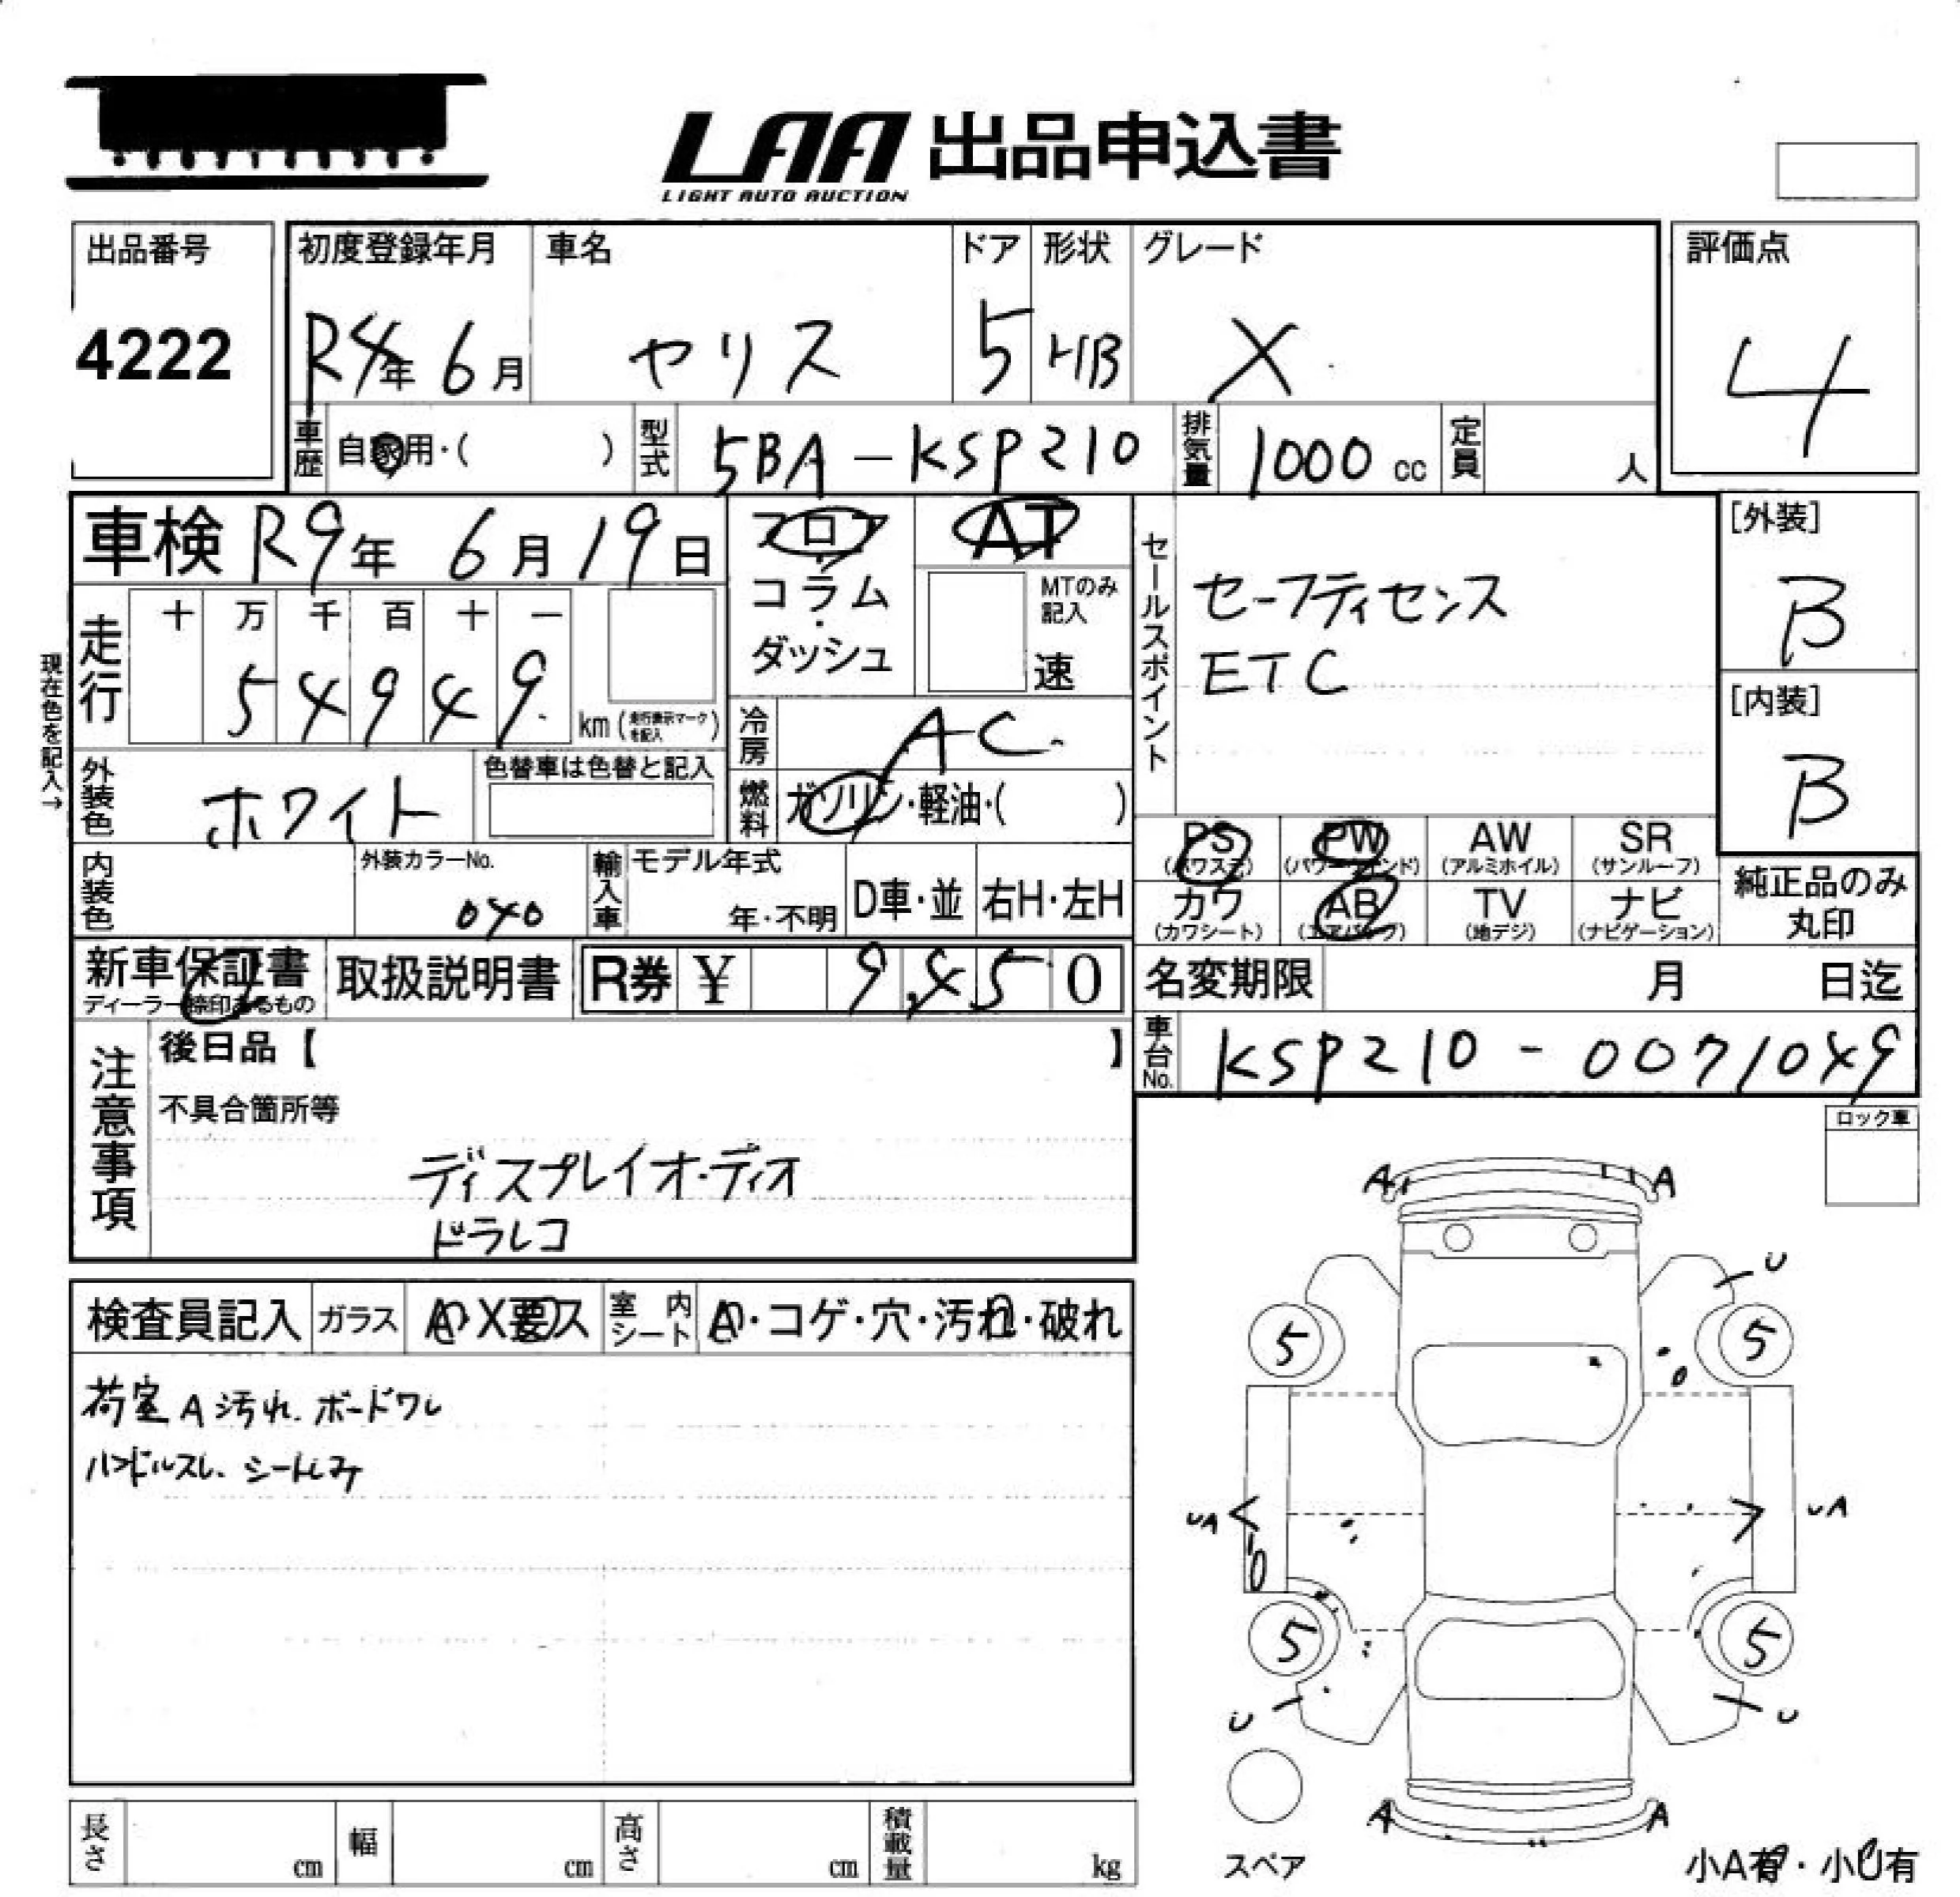 LAA 出品申込書
LIGHT AUTO AUCTION
出品番号
4222
初度登録年月
R4年 6月
車名
ヤリス
ドア
5
形状
HB
グレード
X
評価点
4
車歴 自家用・( )
型式 5BA-KSP210
排気量 1000 cc
定員 人
車検 R9年 6月 19日
フロア
・
コラム
・
ダッシュ
AT
MTのみ
記入
速
セールスポイント
セーフティセンス
ETC
[外装]
B
[内装]
B
現在色を記入→
走行
十 万 千 百 十 一
5 4 9 4 9
km (走行表示マークを記入)
冷房 AC
外装色 ホワイト
色替車は色替と記入
燃料 ガソリン・軽油・( )
PS (パワステ)
PW (パワーウィンド)
AW (アルミホイル)
SR (サンルーフ)
カワ (カワシート)
AB (エアバッグ)
TV (地デジ)
ナビ (ナビゲーション)
純正品のみ
丸印
内装色
外装カラーNo.
040
輸入車
モデル年式
年・不明
D車・並
右H・左H
新車保証書
ディーラー捺印あるもの
取扱説明書
R券 ¥ 9,450
名変期限 月 日迄
車台No. KSP210-0071049
注意事項
後日品【 】
不具合箇所等
ディスプレイオーディオ
ドラレコ
ロック車
検査員記入
ガラス A・X要ス
室内シート A・コゲ・穴・汚れ・破れ
荷室A汚れ.ボードワレ
ハンドルスレ.シートシミ
A A
U
5 5
UA UA
5 5
U U
A A
スペア
小A有・小U有
長さ cm
幅 cm
高さ cm
積載量 kg